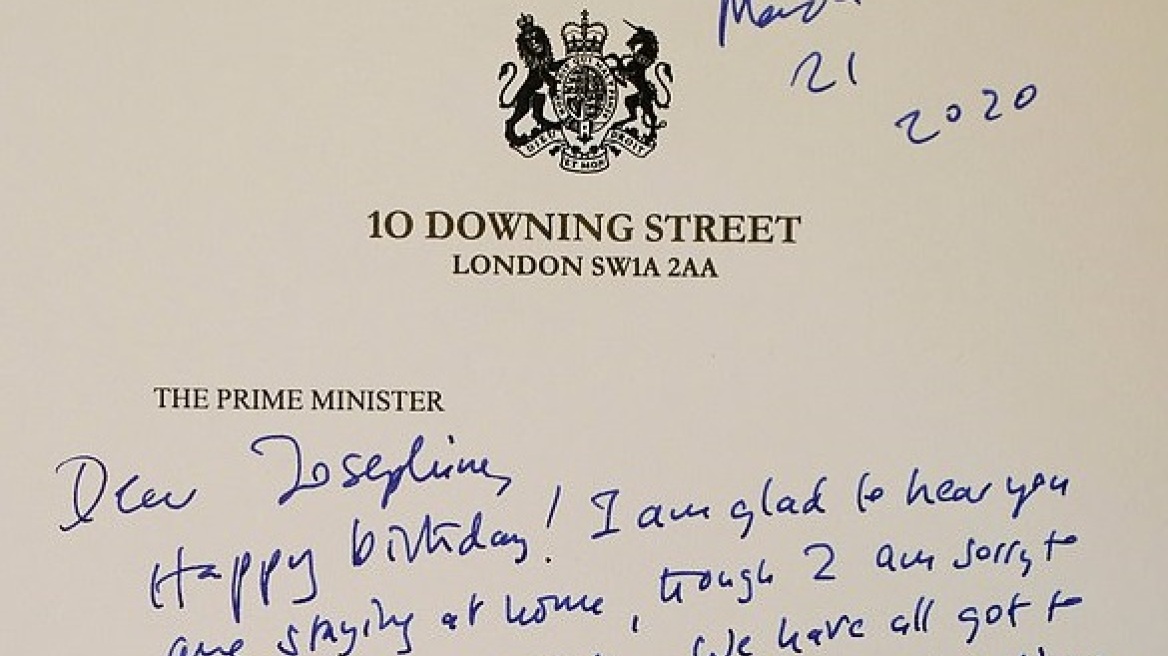 March
21
2020
DIEU ET MON DROIT
10 DOWNING STREET
LONDON SW1A 2AA
THE PRIME MINISTER
Dear Josephine,
Happy birthday! I am glad to hear you
are staying at home, though I am sorry to
We have all got to